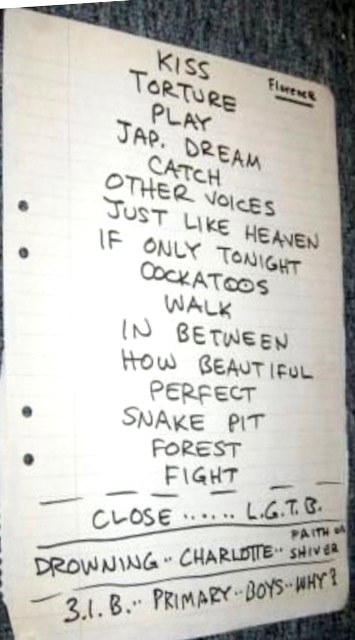 KISS
Florence
TORTURE
PLAY
JAP. DREAM
CATCH
OTHER VOICES
JUST LIKE HEAVEN
IF ONLY TONIGHT
COCKATOOS
WALK
IN BETWEEN
HOW BEAUTIFUL
PERFECT
SNAKE PIT
FOREST
FIGHT
CLOSE ...... L.G.T.B.
FAITH OR
DROWNING .. CHARLOTTE .. SHIVER
3.I.B. .. PRIMARY .. BOYS .. WHY?